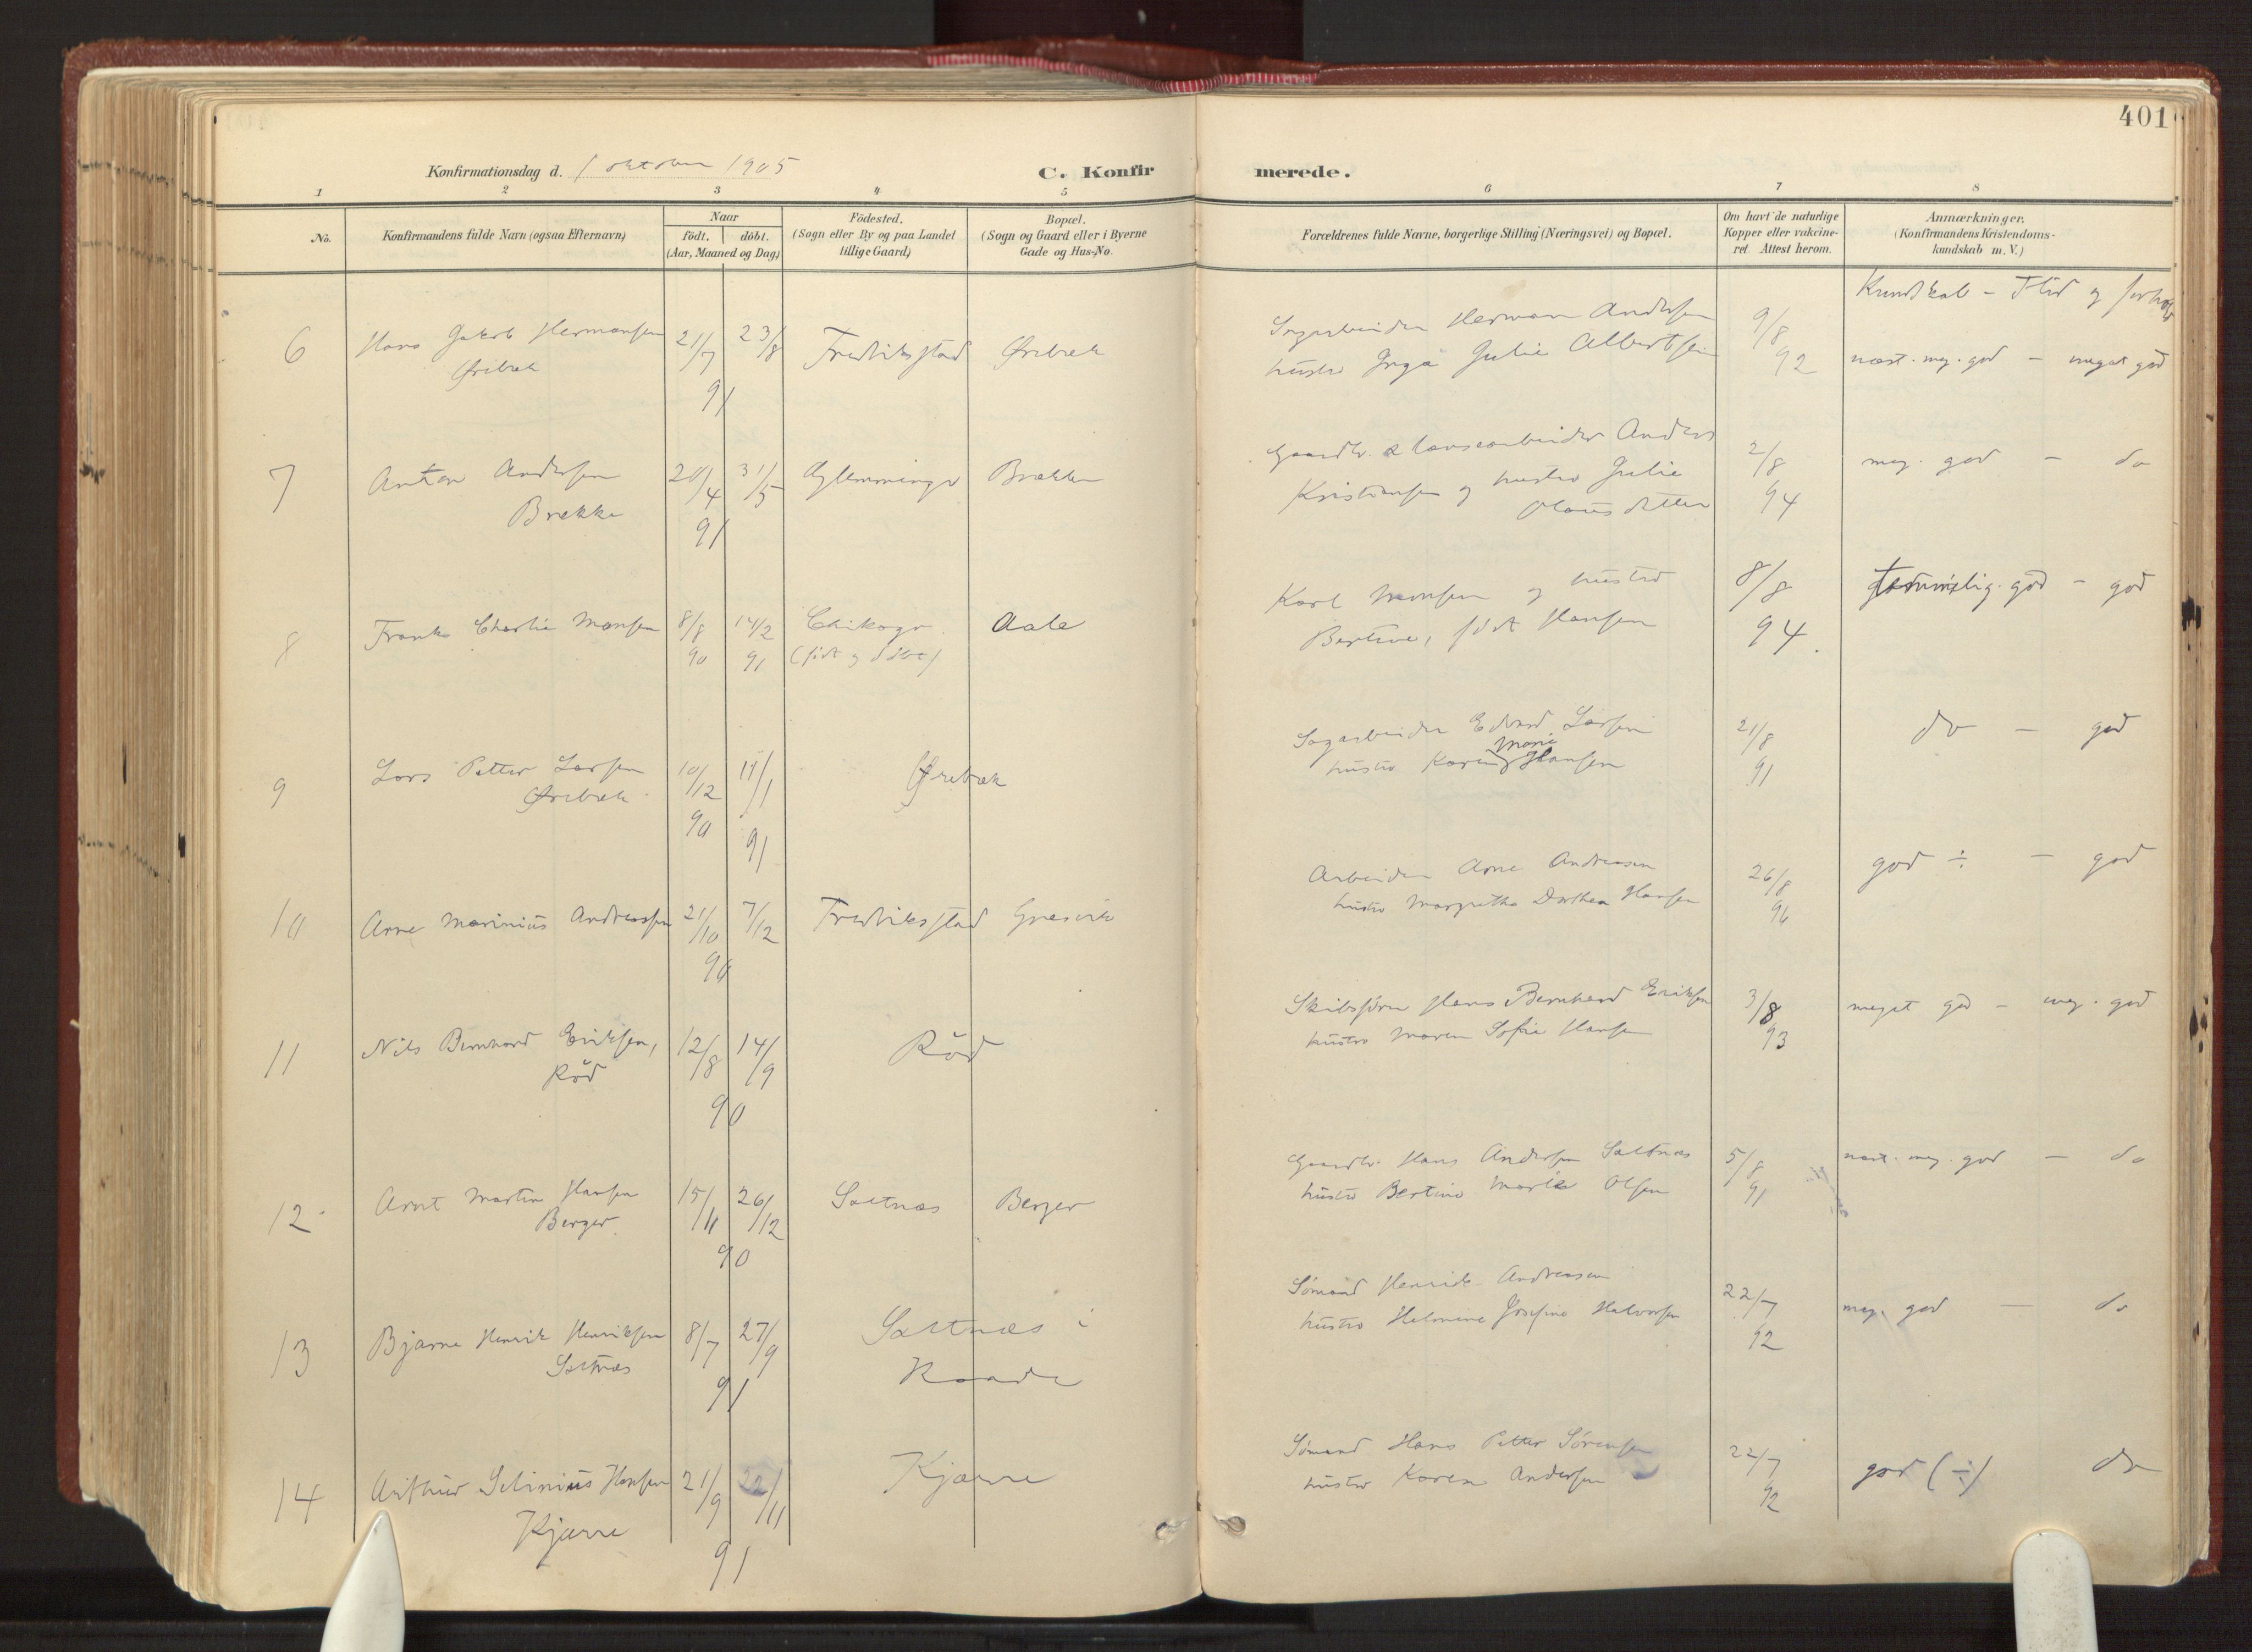 401
Konfirmationsdag d. 1 oktober 1905
C. Konfirmerede.
1 2 3 4 5 6 7 8
No.
Konfirmandens fulde Navn (ogsaa Efternavn)
Naar
födt, döbt.
(Aar, Maaned og Dag)
Födested.
(Sogn eller By og paa Landet
tillige Gaard)
Bopæl.
(Sogn og Gaard eller i Byerne
Gade og Hus-No.
Forældrenes fulde Navne, borgerlige Stilling (Næringsvei) og Bopæl.
Om havt de naturlige
Kopper eller vakcine-
ret. Attest herom.
Anmærkninger.
(Konfirmandens Kristendoms-
kundskab m. V.)
Kundskab - Flid og forhold
6 Hans Jakob Hermansen 21/7 23/8 Fredriksstad Ørebæk Sagarbeider Herman Andersen 9/8
Ørebæk 91 hustru Inga Julie Albertsen 92 næst. meg. god - meget god
7 Anton Andersen 20/4 31/5 Glemminge Brække Gaardbr. & Anders 2/8 meg. god - do
Brække 91 Kristiansen og hustru Julie Olausdatter 94
8 Frank Charlie Monsen 8/8 14/2 Chikago Aale Karl Monsen og hustru 8/8 temmelig god - god
90 91 (født og döbt) Bertine, født Hansen 94.
9 Lars Petter Larsen 10/12 11/1 Ørebæk Sagarbeider Edvard Larsen 21/8 do - god
Ørebæk 90 91 hustru Karen Marie Hansen 91
10 Arne Marinius Andreassen 21/10 7/12 Fredriksstad Gresvik Arbeider Arne Andreasen 26/8 god ÷ - god
90 hustru Margrethe Dorthea Hansen 96
11 Nils Bernhard Eriksen, 12/8 14/9 Röd Skibsförer Hans Bernhard Eriksen 3/8 meget god - meg. god
Röd 90 hustru Maren Sofie Hansen 93
12 Arnt Martin Hansen 15/11 26/12 Saltnæs Berger Gaardbr. Hans Andersen Saltnæs 5/8 næst. meg. god - do
Berger 90 hustru Bertine Marie Olsen 91
13 Bjarne Henrik Henriksen 8/7 27/9 Saltnæs i Sömand Henrik Andreasen 22/7 meg. god - do
Saltnæs 91 Raade hustru Helmine Josefine Halvorsen 92
14 Arthur Selinius Hansen 21/9 22/11 Kjærre Sömand Hans Petter Sörensen 22/7 god (÷) do
Kjærre 91 hustru Karen Andersen 92